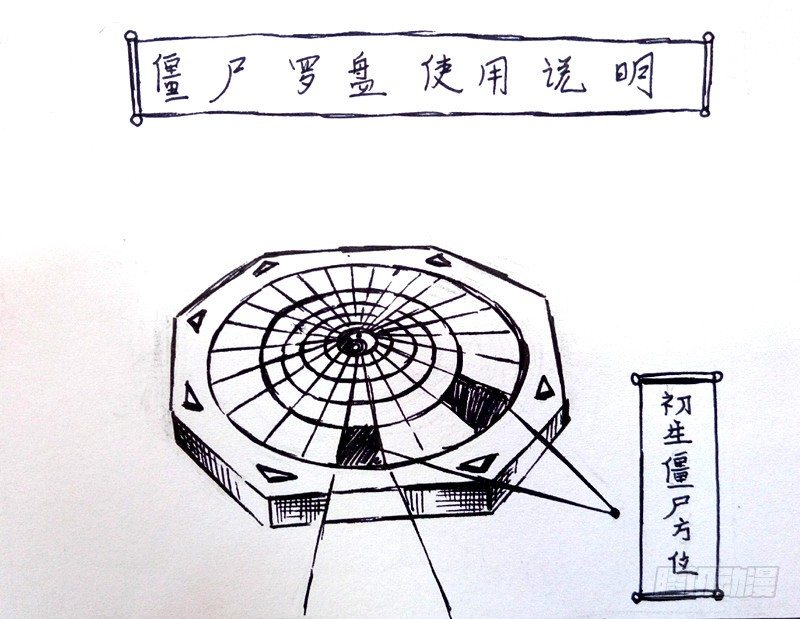 僵尸罗盘使用说明
初生僵尸方位